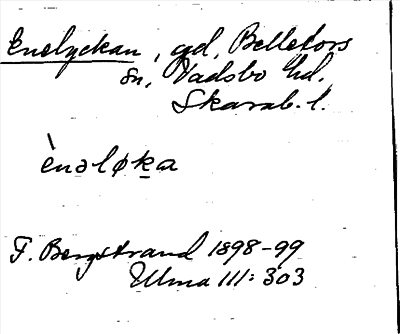 Enelyckan, gd, Bellefors
sn, Vadsbo hd.
Skarab. l.
ènəløka
F. Bergstrand 1898-99
Ulma 111:303